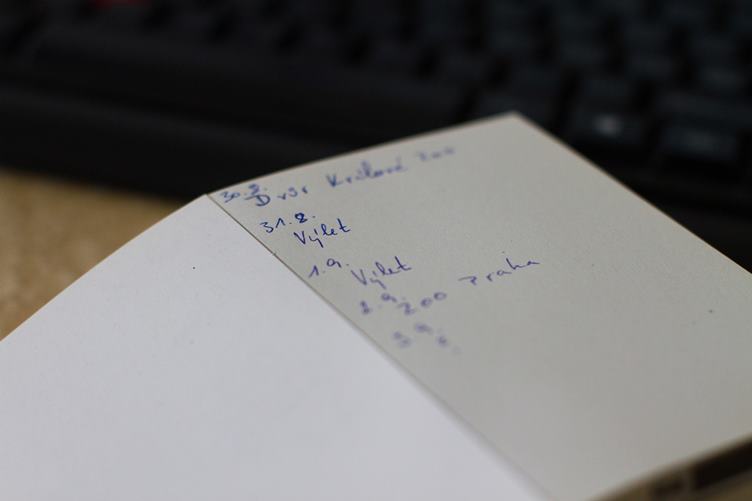 30.8.
Dvůr Králové zoo
31.8.
Výlet
1.9.
Výlet
2.9.
zoo Praha
3.9.